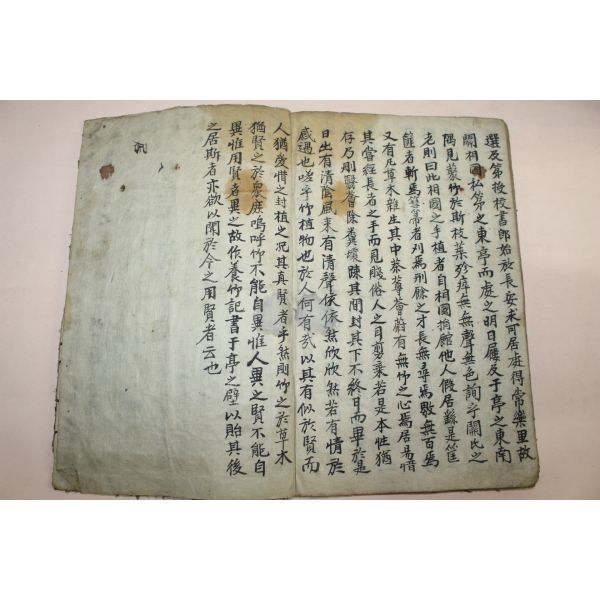 選及第授校書郎始於長安求可居處得常樂里故
關相國私第之東亭而處之明日屨及于亭之東南
隅見叢竹於斯枝葉殄瘁無聲無色詢乎關氏之
老則曰此相國之手植者自相國捐館他人假居繇是筐
篚者斬焉篲箒者刈焉刑餘之才長無尋焉數無百焉
又有凡草木雜生其中菶茸薈蔚有無竹之心焉居易惜
其嘗經長者之手而見賤俗人之目剪棄若是本性猶
存乃刪翳薈除糞壤踈其間封其下不終日而畢於是
日出有清陰風来有清聲依依然欣欣然若有情於
感遇也嗟乎竹植物也於人何有哉以其有似於賢而
人猶愛惜之封植之况其真賢者乎然則竹之於草木
猶賢之於衆庶嗚呼竹不能自異惟人異之賢不能自
異惟用賢者異之故作養竹記書于亭之壁以貽其後
之居斯者亦欲以聞於今之用賢者云也